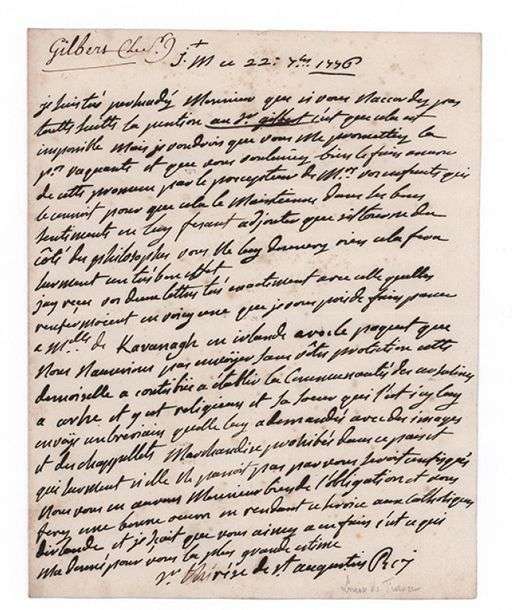 Gilbert (le Sr)
J. M ce 22: 7bre 1776
je suis très persuadée Monsieur que si vous n'accordez pas
toutte suitte la pention au Sr gilbert c'est que cela est
imposible mais je voudrois que vous me promettiez la
pre vaquante et que vous voulussiez bien le faire assurer
de cette promesse par le precepteur de Mrs vos enfants qui
le connoit pour que cela le Maintienne dans les bons
sentiments en luy fesant adjouter que s'il tourne du
côté des philosophes vous ne luy donnerez rien cela fera
surement un très bon effet
jay reçeu vos deux lettres très exactement avec celle quelles
renfermoient en voicy une que je vous prie de faire passer
a Melle de Kavanagh en irlande avec le paquet que
nous n'aurions pas envoyer sans vôtre protection cette
demoiselle a contribué a établir la Communauté des ursulines
a corke et y est religieuse et sa soeur qui l'est icy luy
envoye un breviaire quelle luy a demandés avec des images
et des chappellets Marchandise prohibés dans ce pais et
qui surement si elle ne passoit pas par vous seroit
nous vous en aurons Monsieur bien de l'obligation et vous
ferez une bonne oeuvre en rendant service aux catholiques
dirlande et je scait que vous aimez a en faire c'est ce qui
ma donné pour vous la plus grande estime
Sr thérèse de st augustin
Louise de France